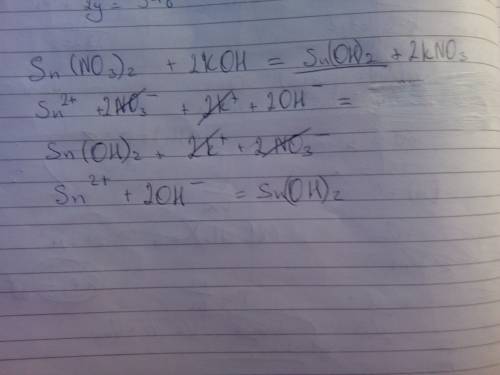 2y = 5
Sn(NO₃)₂ + 2KOH = Sn(OH)₂ + 2KNO₃
Sn²⁺ + 2NO₃⁻ + 2K⁺ + 2OH⁻ =
Sn(OH)₂ + 2K⁺ + 2NO₃⁻
Sn²⁺ + 2OH⁻ = Sn(OH)₂